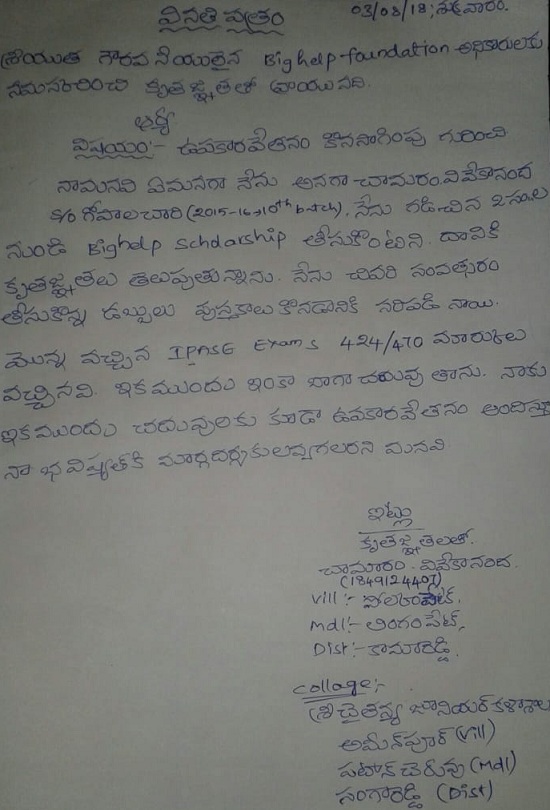 వినతి పత్రం
03/08/18, శుక్రవారం.
శ్రీయుత గౌరవనీయులైన Bighelp-foundation అధికారులకు
నమస్కరించి కృతజ్ఞతతో వ్రాయునది.
ఆర్య
విషయం:- ఉపకారవేతనం కొనసాగింపు గురించి
నామనవి ఏమనగా నేను అనగా చామారం.వివేకానంద
S/o గోపాలచారి (2015-16→10th batch). నేను గడిచిన 2సం,ల
నుండి Bighelp Scholarship తీసుకొంటిని. దానికి
కృతజ్ఞతలు తెలుపుతున్నాను. నేను చివరి సంవత్సరం
తీసుకొన్న డబ్బులు పుస్తకాలు కొనడానికి సరిపడినాయి.
మొన్న వచ్చిన IPASE Exams 424/470 మార్కులు
వచ్చినవి. ఇకముందు ఇంకా బాగా చదువుతాను. నాకు
ఇకముందు చదువులకు కూడా ఉపకారవేతనం అందిస్తూ
నా భవిష్యత్‌కి మార్గదర్శకులవ్వగలరని మనవి
ఇట్లు
కృతజ్ఞతలతో.
చామారం. వివేకానంద.
(1849124407)
Vill:- పోల్కంపేట్.
Mdl:- లింగంపేట్,
Dist:- కామారెడ్డి.
Collage:-
శ్రీ చైతన్య జూనియర్ కళాశాల
అమీన్‌పూర్ (Vill)
పటాన్ చెరువు (Mdl)
సంగారెడ్డి (Dist)